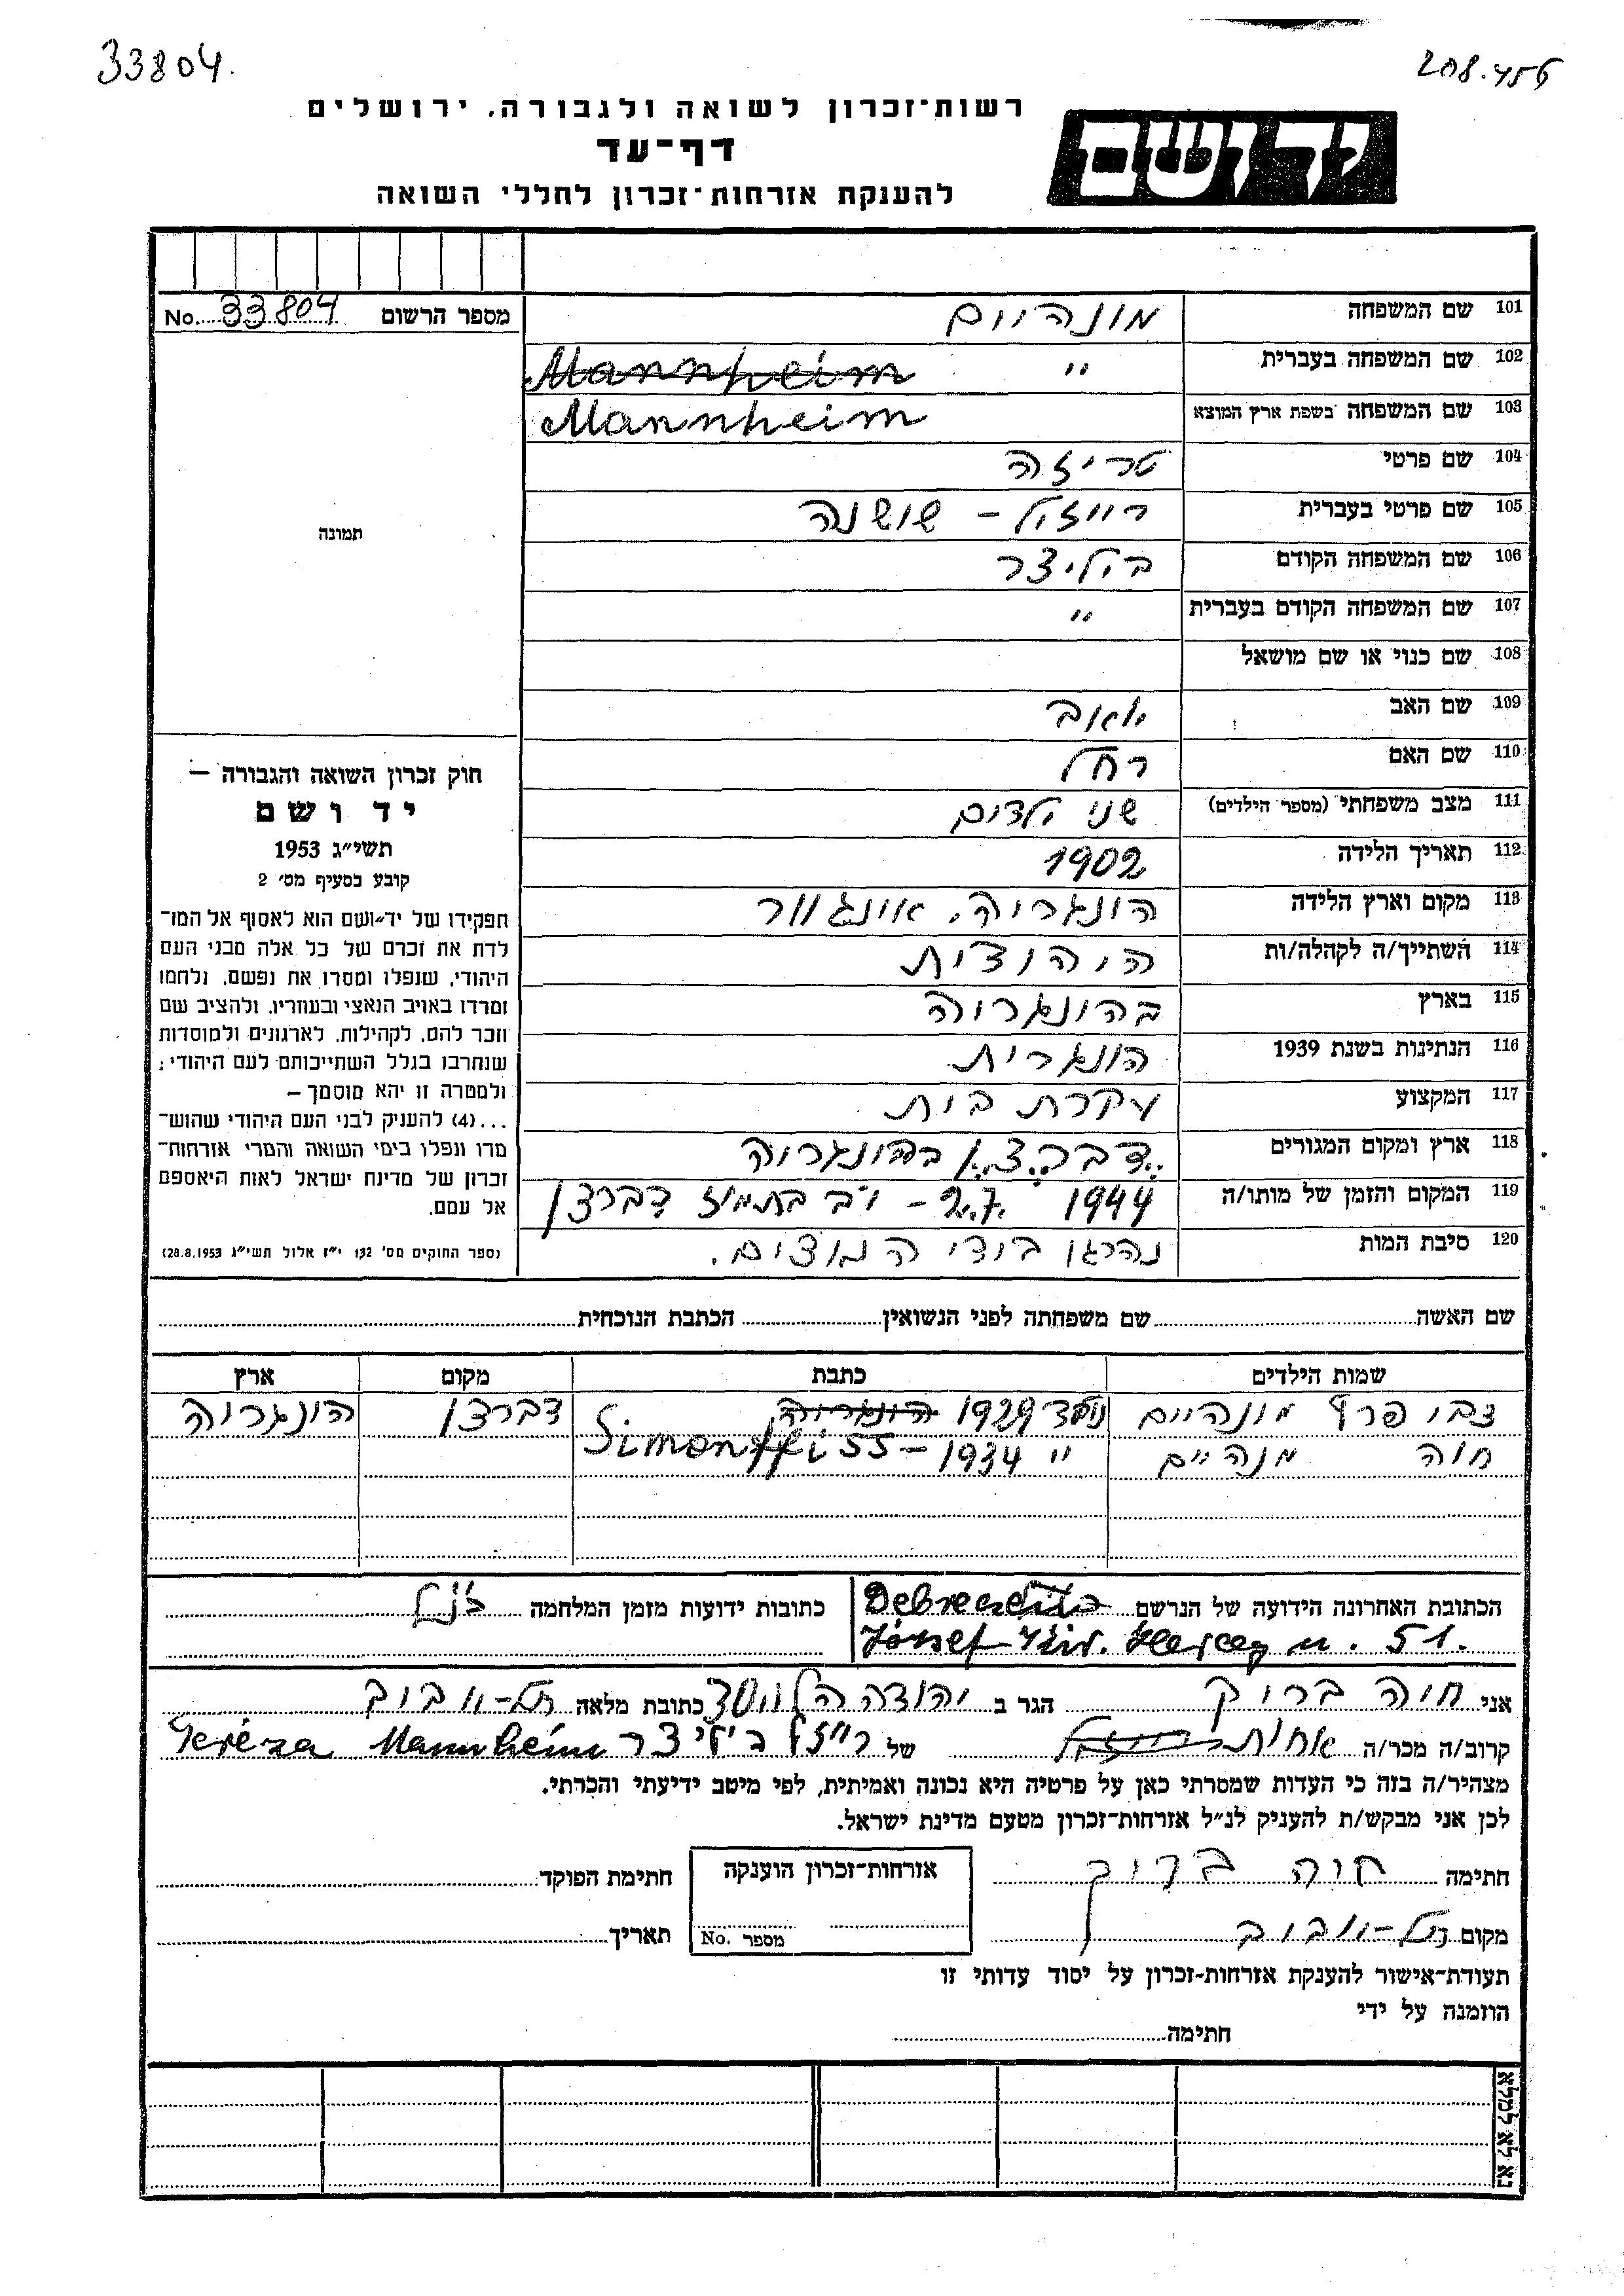 33804.
208.456
רשות־זכרון לשואה ולגבורה, ירושלים
דף־עד
להענקת אזרחות־זכרון לחללי השואה
יד ושם
מספר הרשום No. 33804
101 שם המשפחה מונהיים
102 שם המשפחה בעברית " Mannheim
103 שם המשפחה בשפת ארץ המוצא Mannheim
104 שם פרטי טריזה
105 שם פרטי בעברית רייזל - שושנה
106 שם המשפחה הקודם בוליצר
107 שם המשפחה הקודם בעברית "
108 שם כנוי או שם מושאל
109 שם האב יעקב
110 שם האם רחל
111 מצב משפחתי (מספר הילדים) שני ילדים
112 תאריך הלידה 1902
113 מקום וארץ הלידה הונגריה, אונגוור
114 השתייך/ה לקהלה/ות
115 בארץ בהונגריה
116 הנתינות בשנת 1939 הונגרית
117 המקצוע עקרת בית
118 ארץ ומקום המגורים דברצן בהונגריה
119 המקום והזמן של מותו/ה 1944 2.7. - י"ב בתמוז דברצן
120 סיבת המות נהרגו בידי הנאצים.
תמונה
חוק זכרון השואה והגבורה —
יד ושם
תשי״ג 1953
קובע בסעיף מס׳ 2
תפקידו של יד־ושם הוא לאסוף אל המו־
לדת את זכרם של כל אלה מבני העם
היהודי, שנפלו ומסרו את נפשם, נלחמו
ומרדו באויב הנאצי ובעוזריו, ולהציב שם
וזכר להם, לקהילות, לארגונים ולמוסדות
שנחרבו בגלל השתייכותם לעם היהודי;
ולמטרה זו יהא מוסמך —
...(4) להעניק לבני העם היהודי שהוש־
מדו ונפלו בימי השואה והמרי אזרחות־
זכרון של מדינת ישראל לאות היאספם
אל עמם.
(ספר החוקים מס׳ 132 י״ז אלול תשי״ג 28.8.1953)
שם האשה שם משפחתה לפני הנשואין הכתבת הנוכחית
שמות הילדים כתבת מקום ארץ
צבי פרץ מונהיים נולד 1929 הונגריה דברצן הונגריה
חוה מנהיים " 1934 - Simonffi 55
הכתובת האחרונה הידועה של הנרשם Debrecen
József Kir. Herceg u. 51.
כתובות ידועות מזמן המלחמה כנ"ל
אני חיה ברוך הגר ב יהודה הלוי כתובת מלאה תל-אביב
קרוב/ה מכר/ה אחות של רייזל בוליצר Teréza Mannheim
מצהיר/ה בזה כי העדות שמסרתי כאן על פרטיה היא נכונה ואמיתית, לפי מיטב ידיעתי והכרתי.
לכן אני מבקש/ת להעניק לנ״ל אזרחות־זכרון מטעם מדינת ישראל.
חתימה חיה ברוך
מקום תל-אביב
אזרחות־זכרון הוענקה
מספר No.
חתימת הפוקד
תאריך
תעודת־אישור להענקת אזרחות־זכרון על יסוד עדותי זו
הוזמנה על ידי
חתימה
נא לא למלא